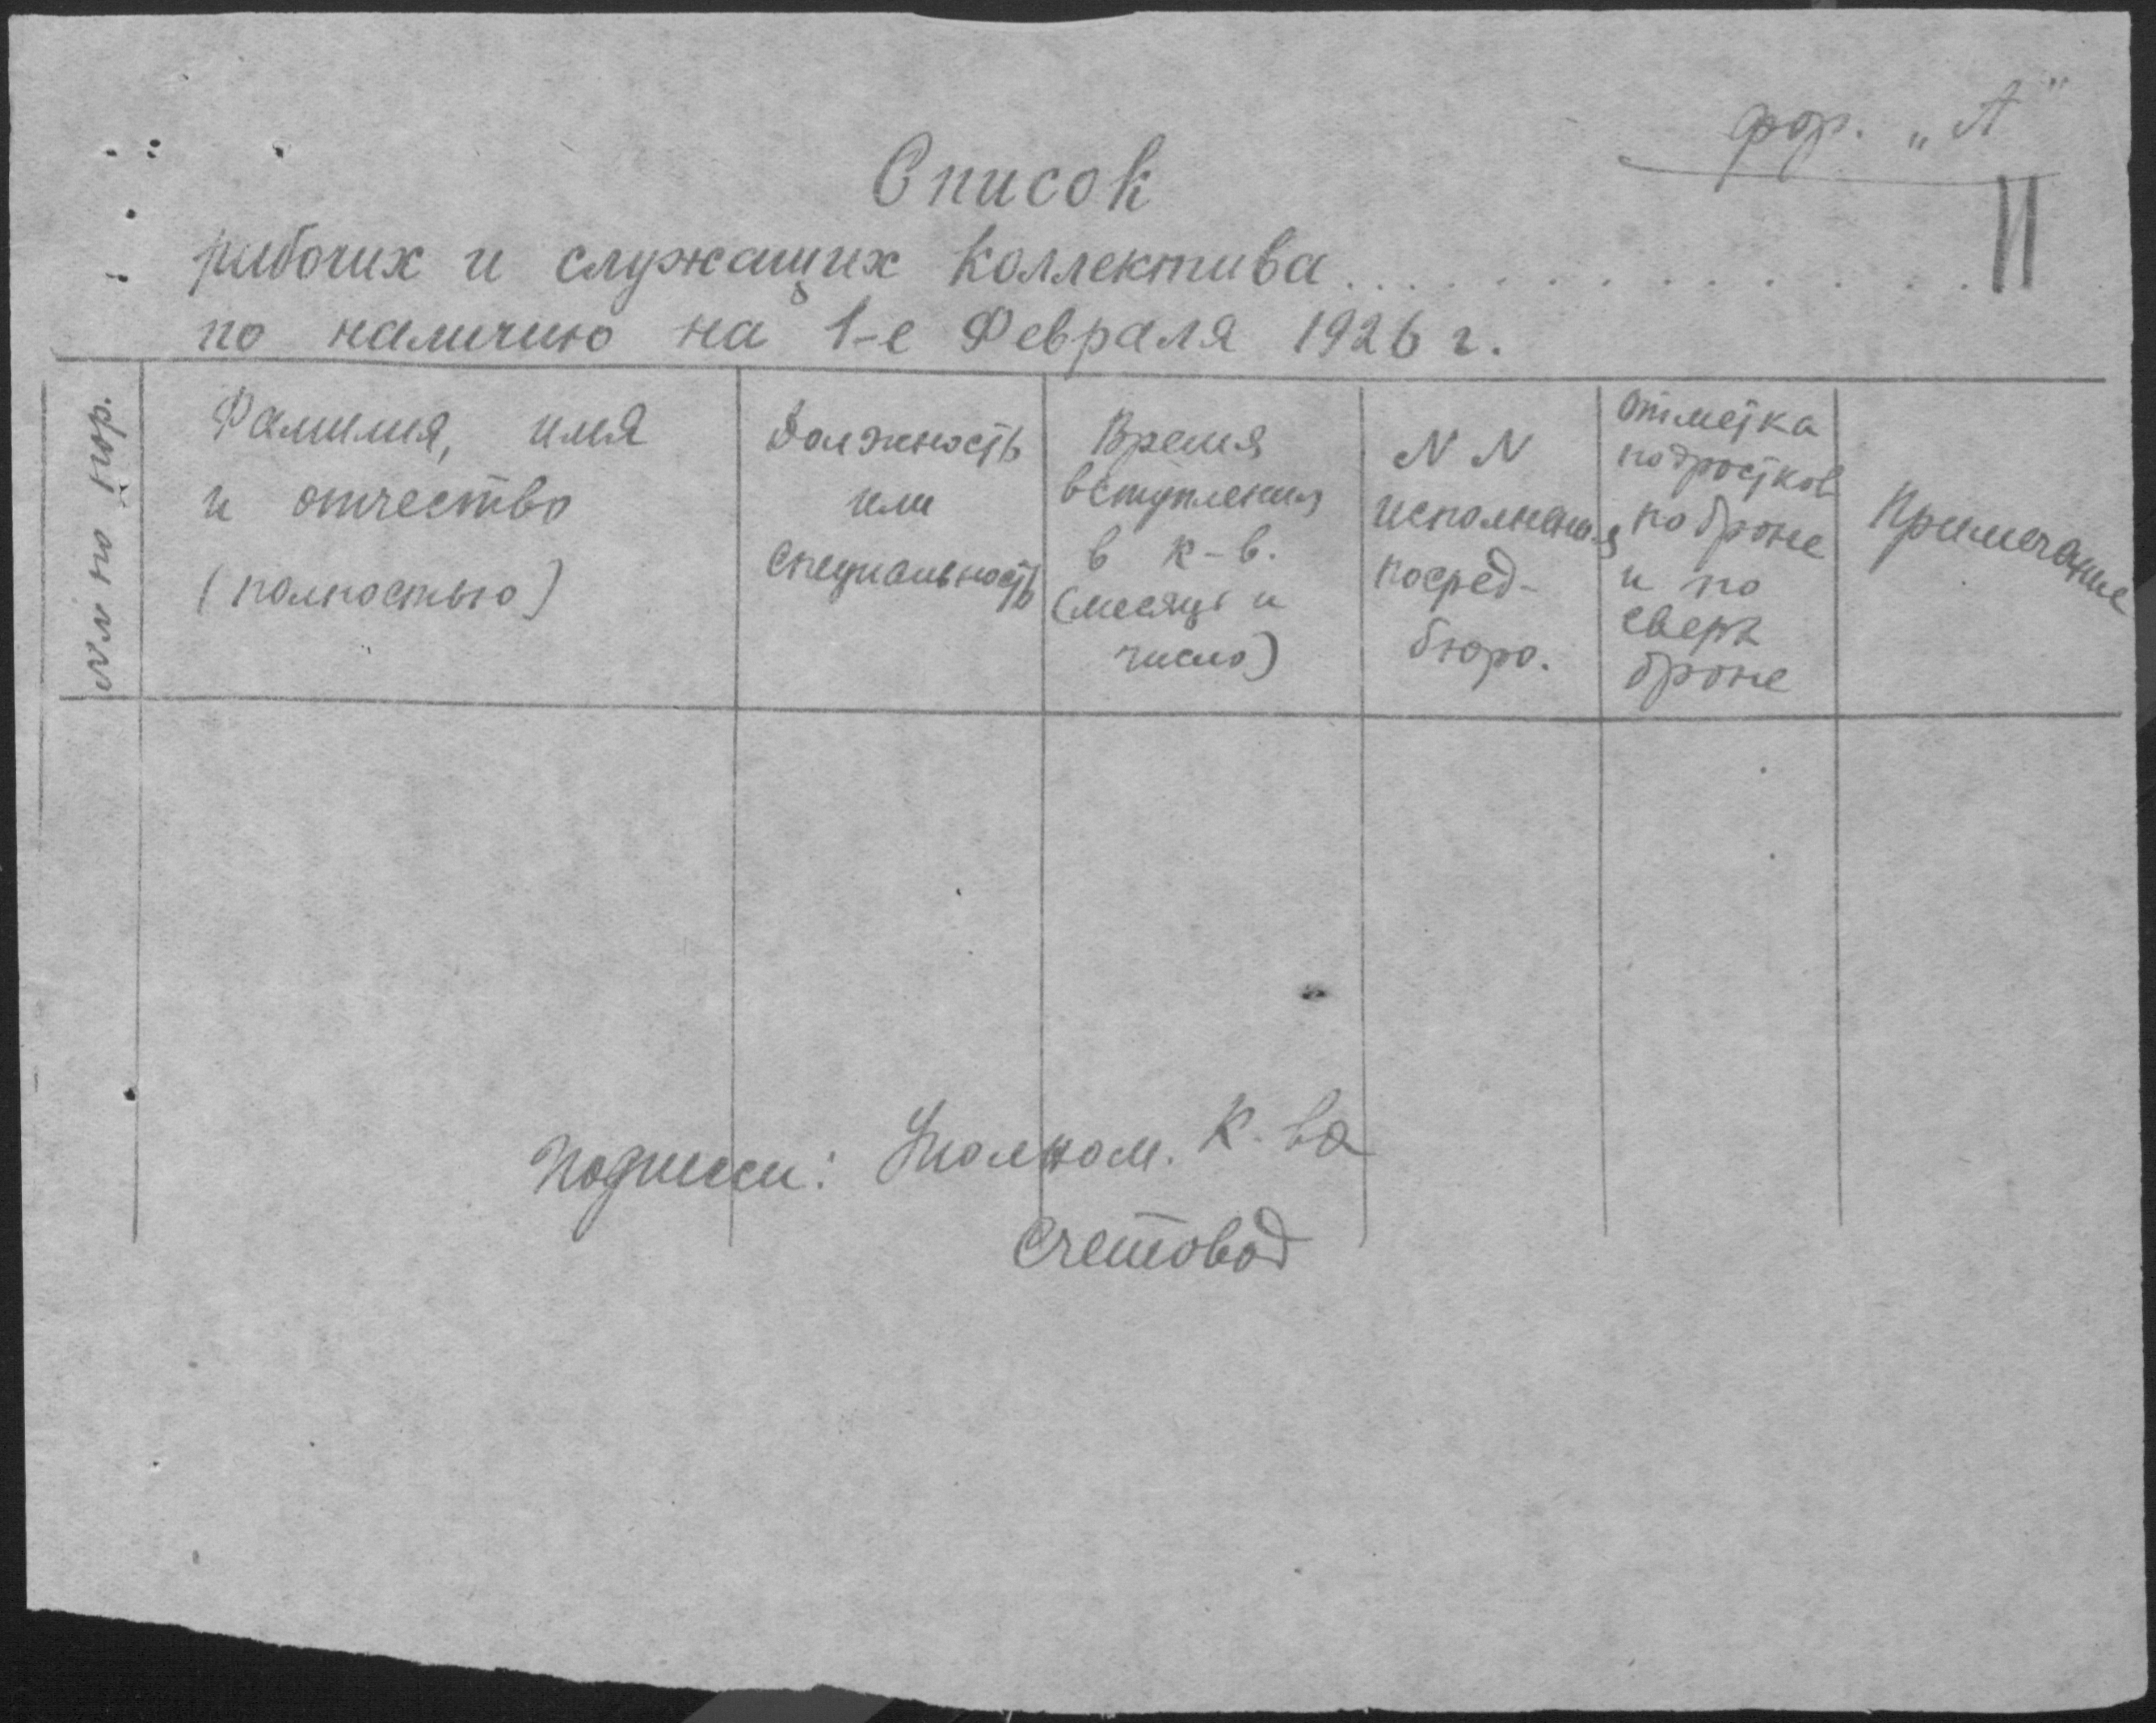 фор. „А"
Список
11
рабочих и служащих коллектива . . . . . . . . . . . .
по наличию на 1-е Февраля 1926 г.
№№ по пор.
Фамилия, имя
и отчество
(полностью)
Должность
или
специальность
Время
вступления
в к-в.
(месяц и
число)
N N
исполнения
посред-
бюро.
Отметка
подростков
по броне
и по
сверх
броне
Примечание
Подписи: Уполном. К-ва
Счетовод